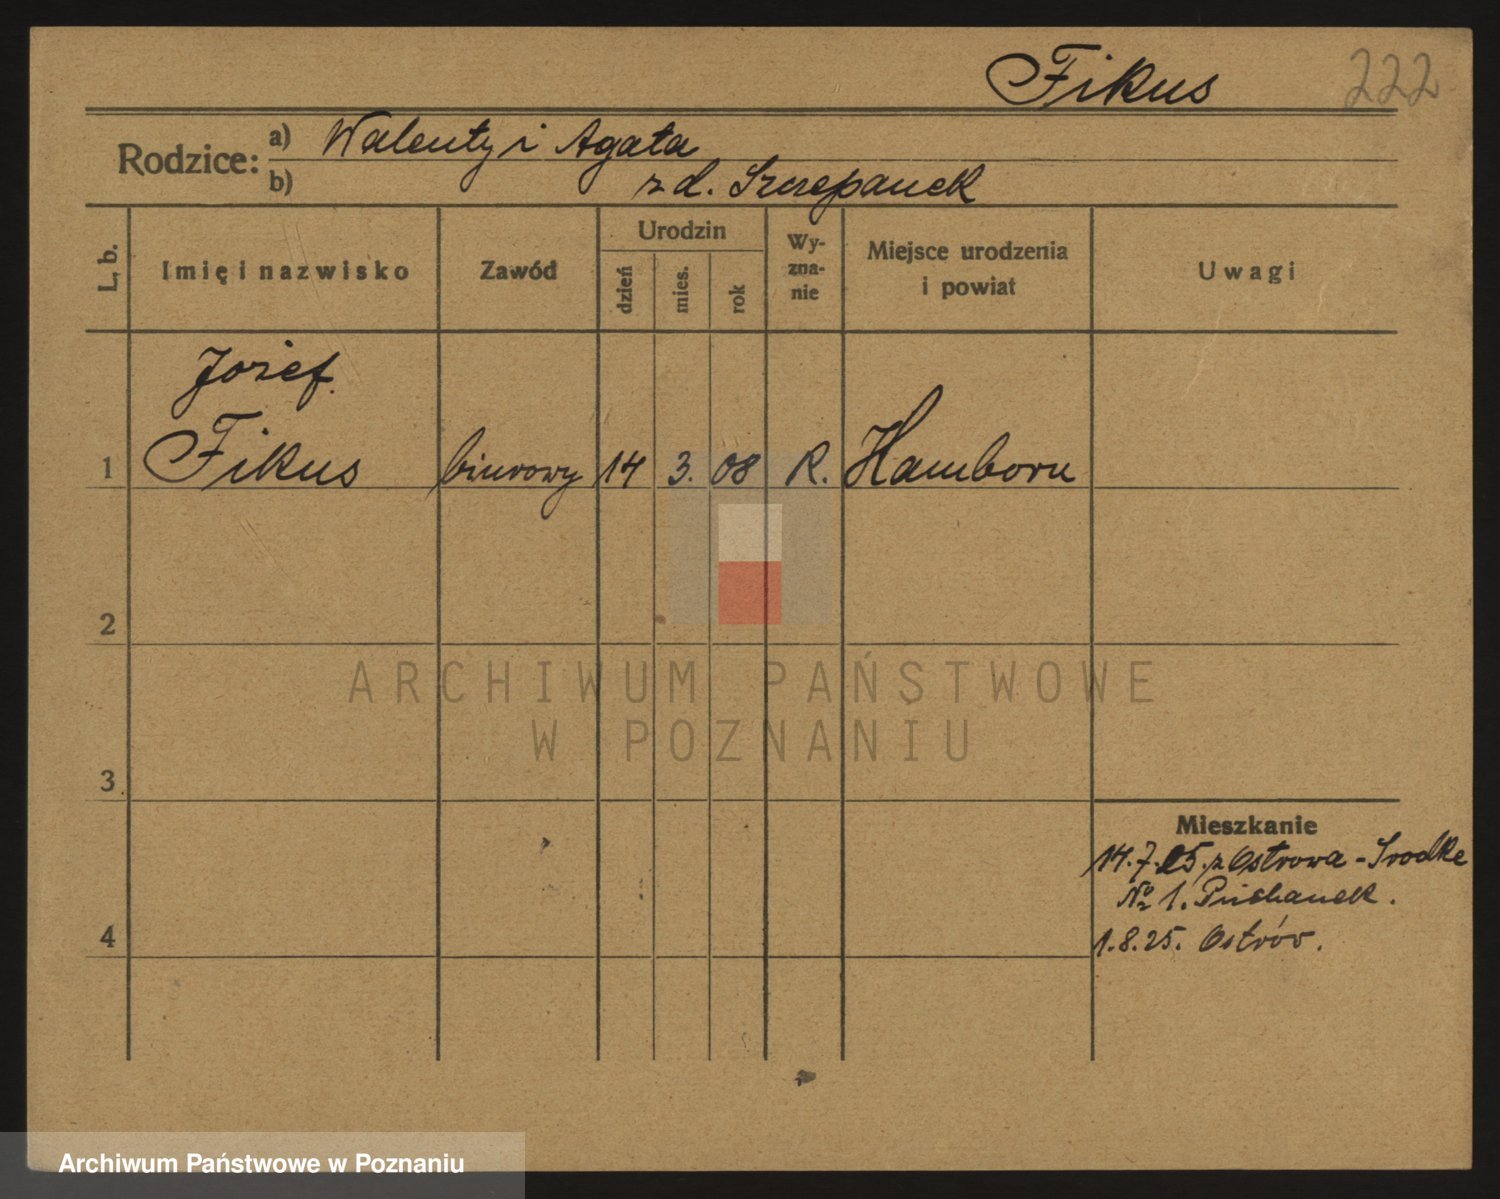 Fikus 222
Rodzice: a) Walenty i Agata
b) z d. Szczepanek
L. b.
Imię i nazwisko
Zawód
Urodzin
dzień
mies.
rok
Wy-
zna-
nie
Miejsce urodzenia
i powiat
Uwagi
Józef
1 Fikus biurowy 14 3. 08 R. Hamborn
2
ARCHIWUM PAŃSTWOWE
W POZNANIU
3
Mieszkanie
14.7.25. z Ostrowa - Srodke
№ 1.
4
1.8.25. Ostrów.
Archiwum Państwowe w Poznaniu